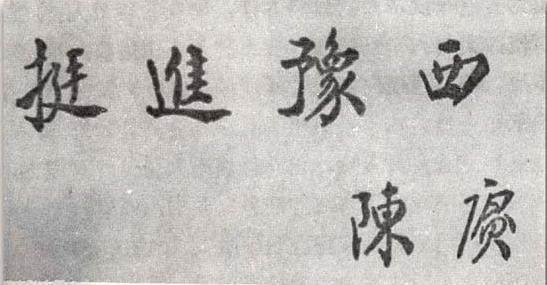 挺進豫西
陳賡